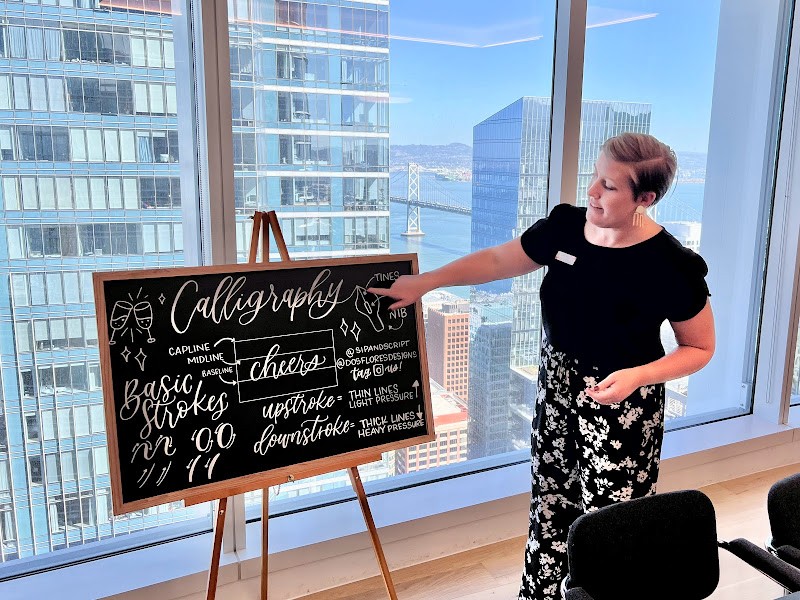 Calligraphy
TINES
NIB
CAPLINE
MIDLINE
BASELINE
cheers
@SIPANDSCRIPT
@DOSFLORESDESIGNS
tag us!
Basic
Strokes
upstroke = THIN LINES
LIGHT PRESSURE
downstroke = THICK LINES
HEAVY PRESSURE